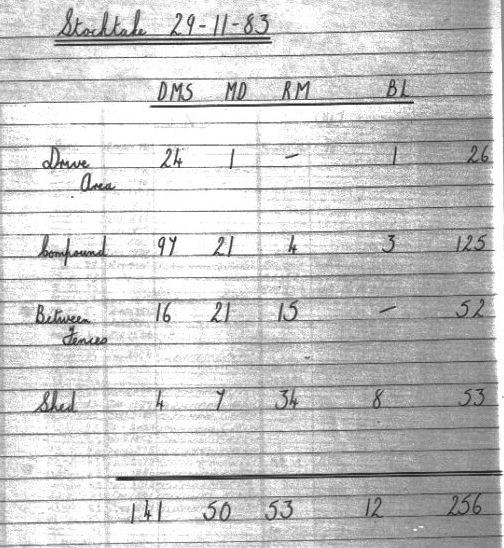 Stocktake 29-11-83
DMS MD RM BL
Drive 24 1 - 1 26
Area
Compound 97 21 4 3 125
Between 16 21 15 - 52
Fences
Shed 4 7 34 8 53
141 50 53 12 256